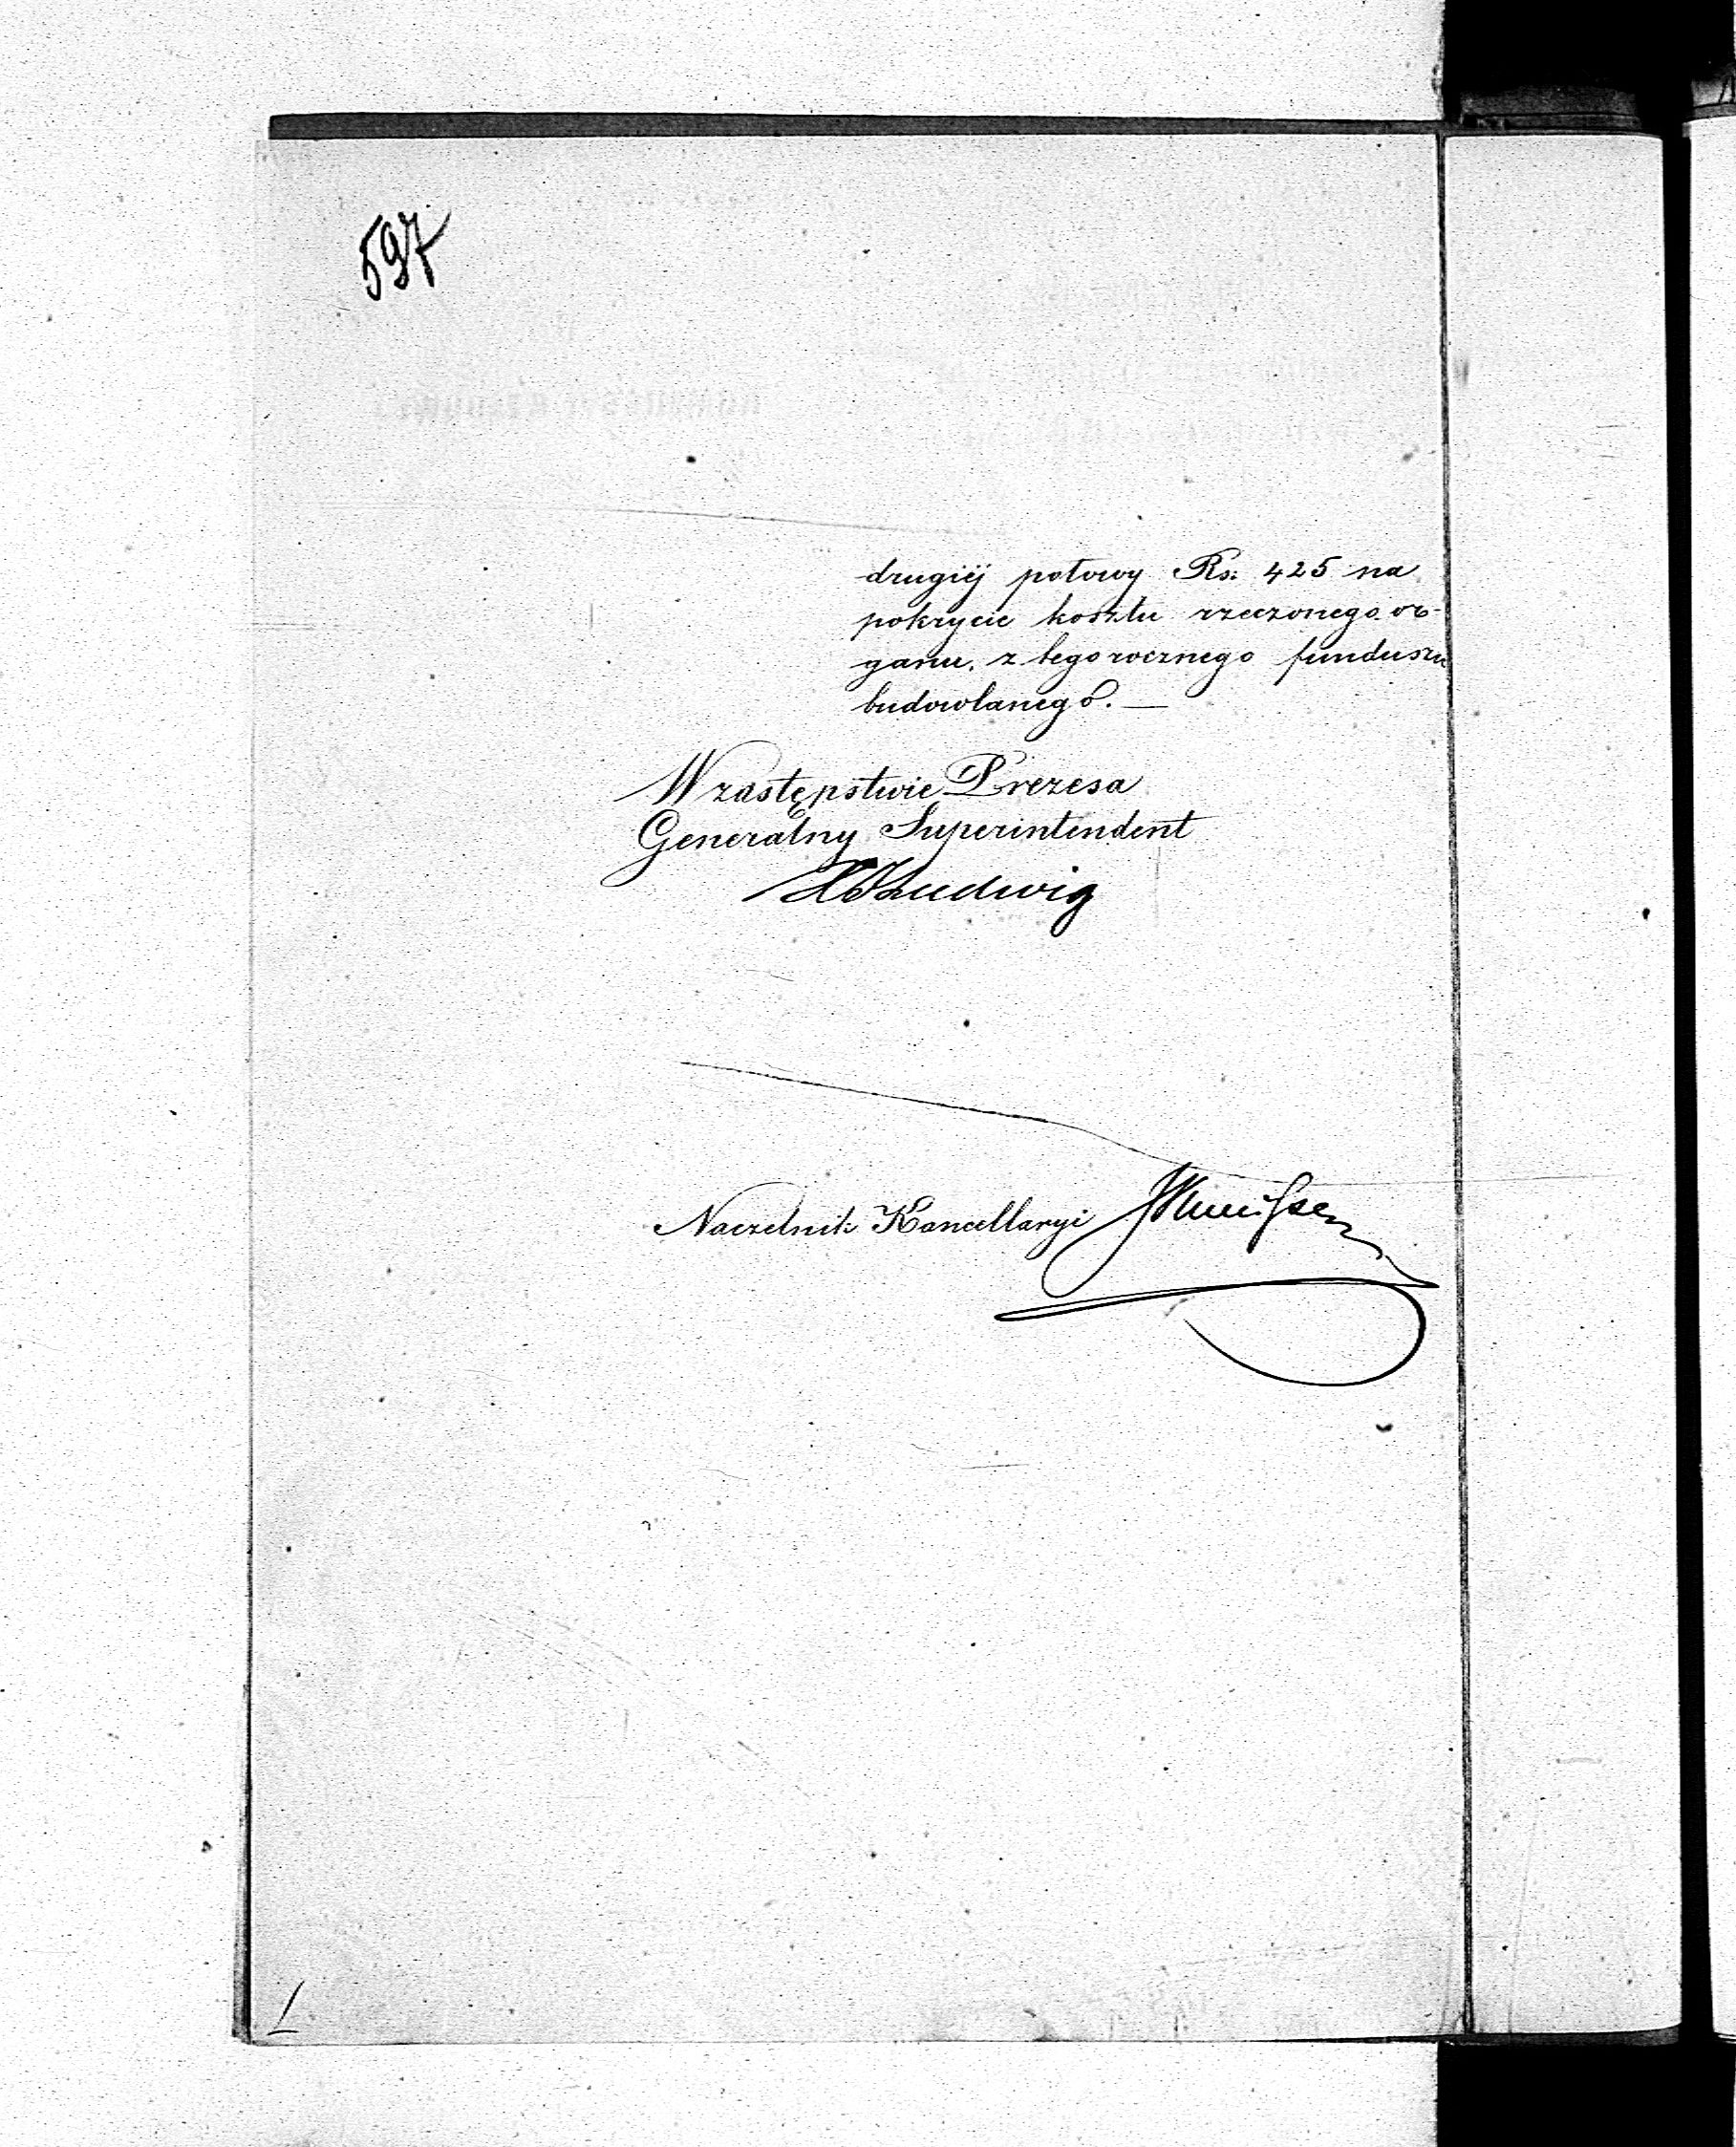 597
drugiéj połowy Rs: 425 na
pokrycie kosztu rzeczonego or-
ganu, z tegorocznego funduszu
budowlanego. —
W zastępstwie Prezesa
Generalny Superintendent
Ludwig
Naczelnik Kancellaryi